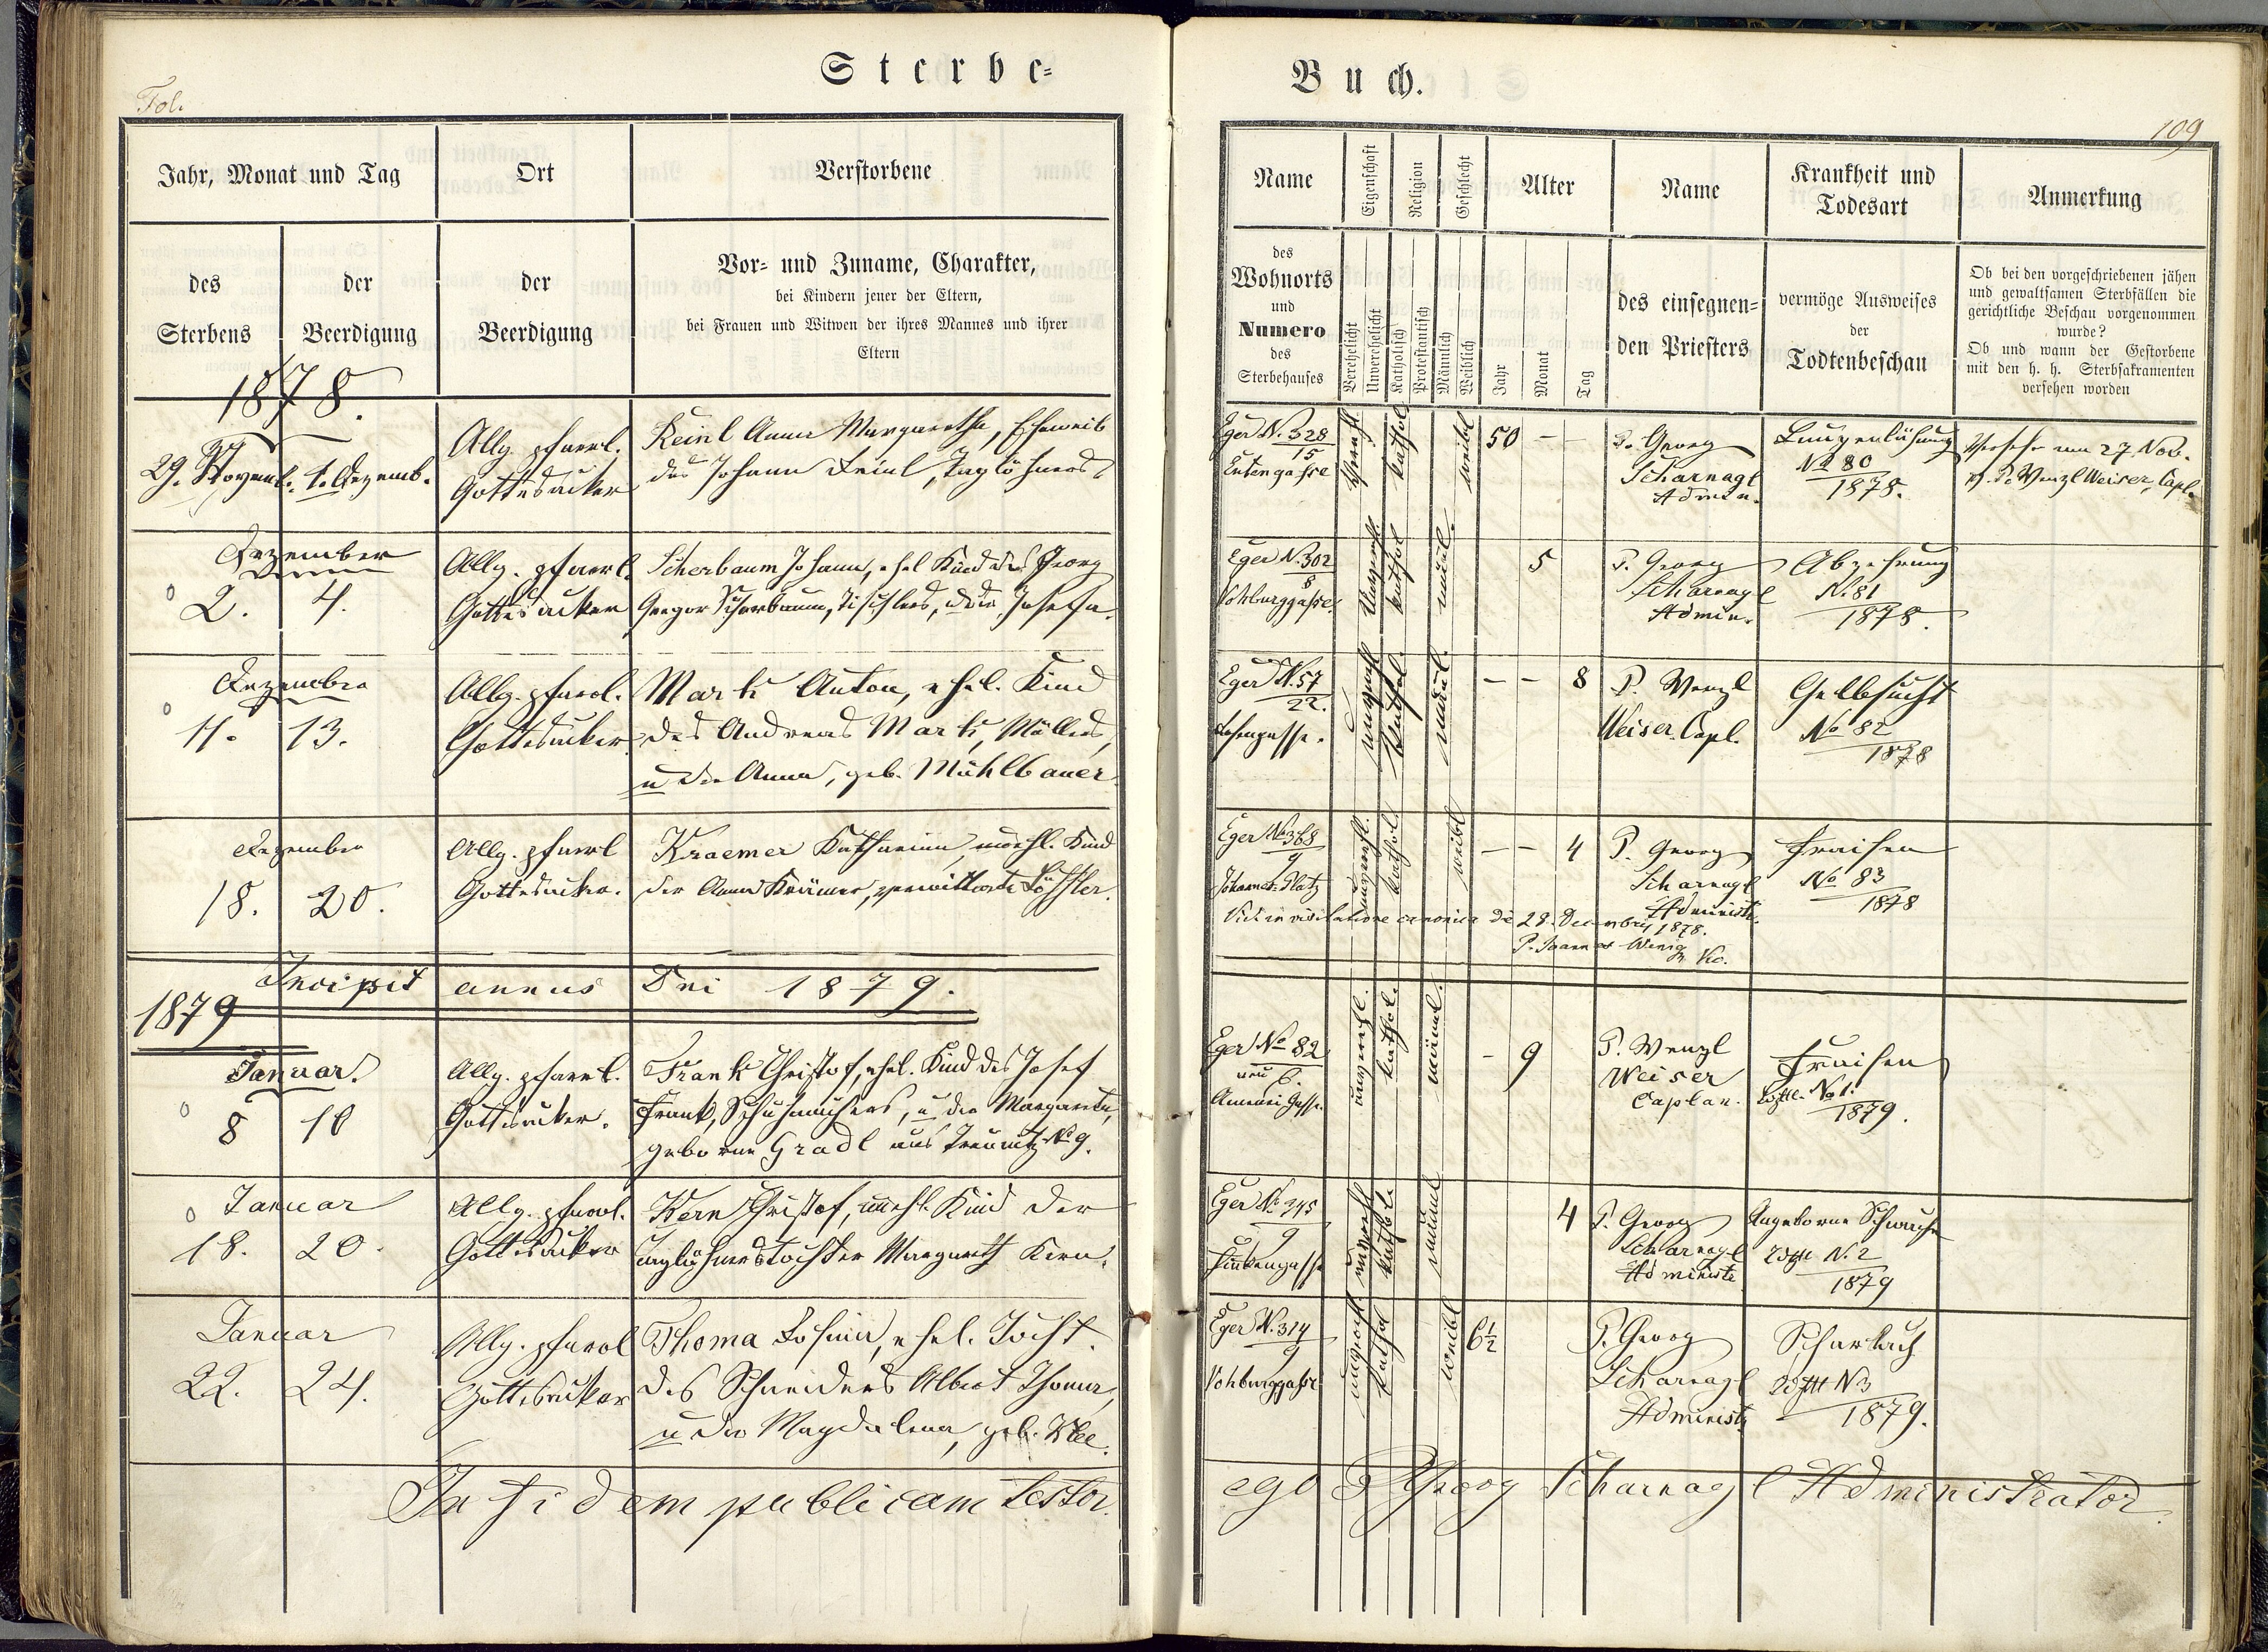 Sterbe-
Fol.
Jahr, Monat und Tag
Ort
Verstorbene
des
Sterbens
der
Beerdigung
der
Beerdigung
Vor- und Zuname, Charakter,
bei Kindern jener der Eltern,
bei Frauen und Witwen der ihres Mannes und ihrer
Eltern
1878.
29. Novemb. 1. Dezemb.
Allg. pfarrl.
Gottesacker
Reinl Anna Margaretha, Eheweib
des Johann Reinl, Taglöhners
Dezember
2. 4.
Allg. pfarrl.
Gottesacker
Scherbaum Johann, ehel Kind des Georg
Gregor Scherbaum, Tischlers, u der Josefa.
Dezember
11. 13.
Allg. pfarrl.
Gottesacker
Mark Anton, ehel. Kind
des Andreas Mark, Müllers,
u der Anna, geb. Mühlbauer
Dezember
18. 20.
Allg. pfarrl
Gottesacker.
Kraemer Katharina, unehl. Kind
der Anna Krämer, verwittwete Löffler.
Incipit annus Dni 1879.
1879
Januar.
8 10
Allg. pfarrl.
Gottesacker.
Frank Christof, ehel. Kind des Josef
Frank, Schuhmachers, u der Margareta,
geborene Gradl aus Treunitz No 9.
Januar
18. 20.
Allg. pfarrl.
Gottesacker
Kern Christof, unehl. Kind der
Taglöhnerstochter Margareth Kern.
Januar
22. 24.
Allg. pfarrl
Gottesacker
Thoma ehel. Tocht.
des Schneiders Albert Thoma,
u der Magdalena, geb. Klee.
In fidem publicam testor.
Buch.
109
Name
Eigenschaft
Religion
Geschlecht
Alter
Name
Krankheit und
Todesart
Anmerkung
des
Wohnorts
und
Numero
des
Sterbehauses
Verehelicht
Unverehelicht
Katholisch
Protestantisch
Männlich
Weiblich
Jahr
Monat
Tag
des einsegnen-
den Priesters
vermöge Ausweises
der
Todtenbeschau
Ob bei den vorgeschriebenen jähen
und gewaltsamen Sterbfällen die
gerichtliche Beschau vorgenommen
wurde?
Ob und wann der Gestorbene
mit den h. h. Sterbsakramenten
versehen worden
Eger N. 328
15
verehl
kathol
weibl
50 - -
P. Georg
Scharnagl
Admin.
Lungenlähmung
No 80
1878.
Versehen am 27. Nov.
v. P. Wenzl Weiser, Capl.
Eger N. 302
8
Vohburggasse.
Unverehl.
kathol
männl.
5
P. Georg
Scharnagl
Admin.
Abzehrung
N. 81
1878.
Eger N. 57
22.
unverehl
kathol.
männl.
- - 8
P. Wenzl
Weiser. Capl.
Gelbsucht
No 82
1878
Eger No 368
9
Johannes-Platz
unverehl.
kathol.
weibl
- - 4
P. Georg
Scharnagl
Administr.
Fraisen
No 83
1878
Vidi in visitatione canonica die 28. Decembris 1878.
P. Joannes Wenig
Eger No 82
neu 6.
unverehl.
kathol.
männl.
- 9
P. Wenzl
Weiser
Caplan.
Fraisen
No 1.
1879.
Eger No 345
9
unverehl
kathol.
männl
4
P. Georg
Scharnagl
Administr
Angeborne Schwäche
N. 2
1879
Eger N. 314
9
Vohburggasse
unverehl.
kathol
weibl
6 1/2
P. Georg
Scharnagl
Administr.
Scharlach
N 3
1879.
ego P Georg Scharnagl Administrator.